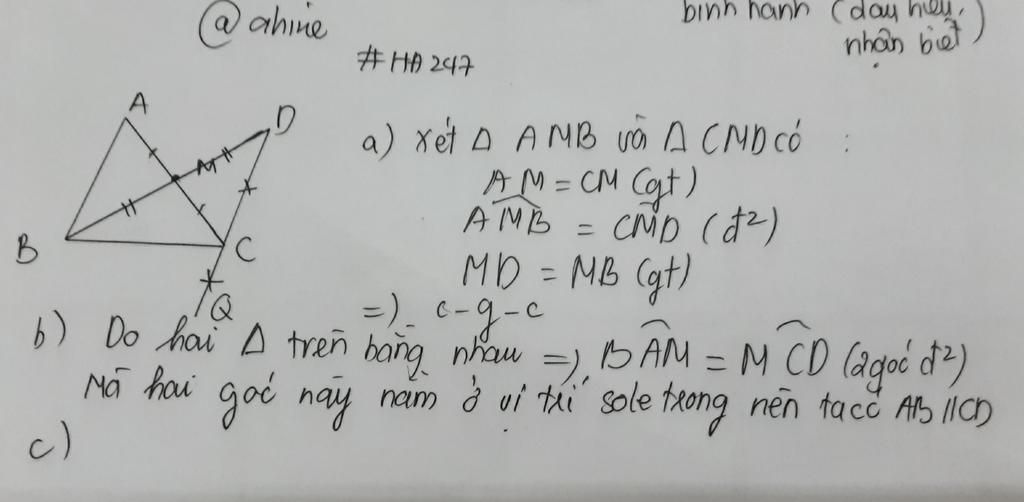 @ahine
bình hành (dấu hiệu,
nhận biết)
#HA247
A
D
M
B
C
Q
a) xét Δ AMB và Δ CMD có :
AM = CM (gt)
AMB = CMD (đ²)
MD = MB (gt)
=) c-g-c
b) Do hai Δ trên bằng nhau =) BAM = MCD (2góc đ²)
Mà hai góc này nằm ở vị trí sole trong nên tacó AB//CD
c)